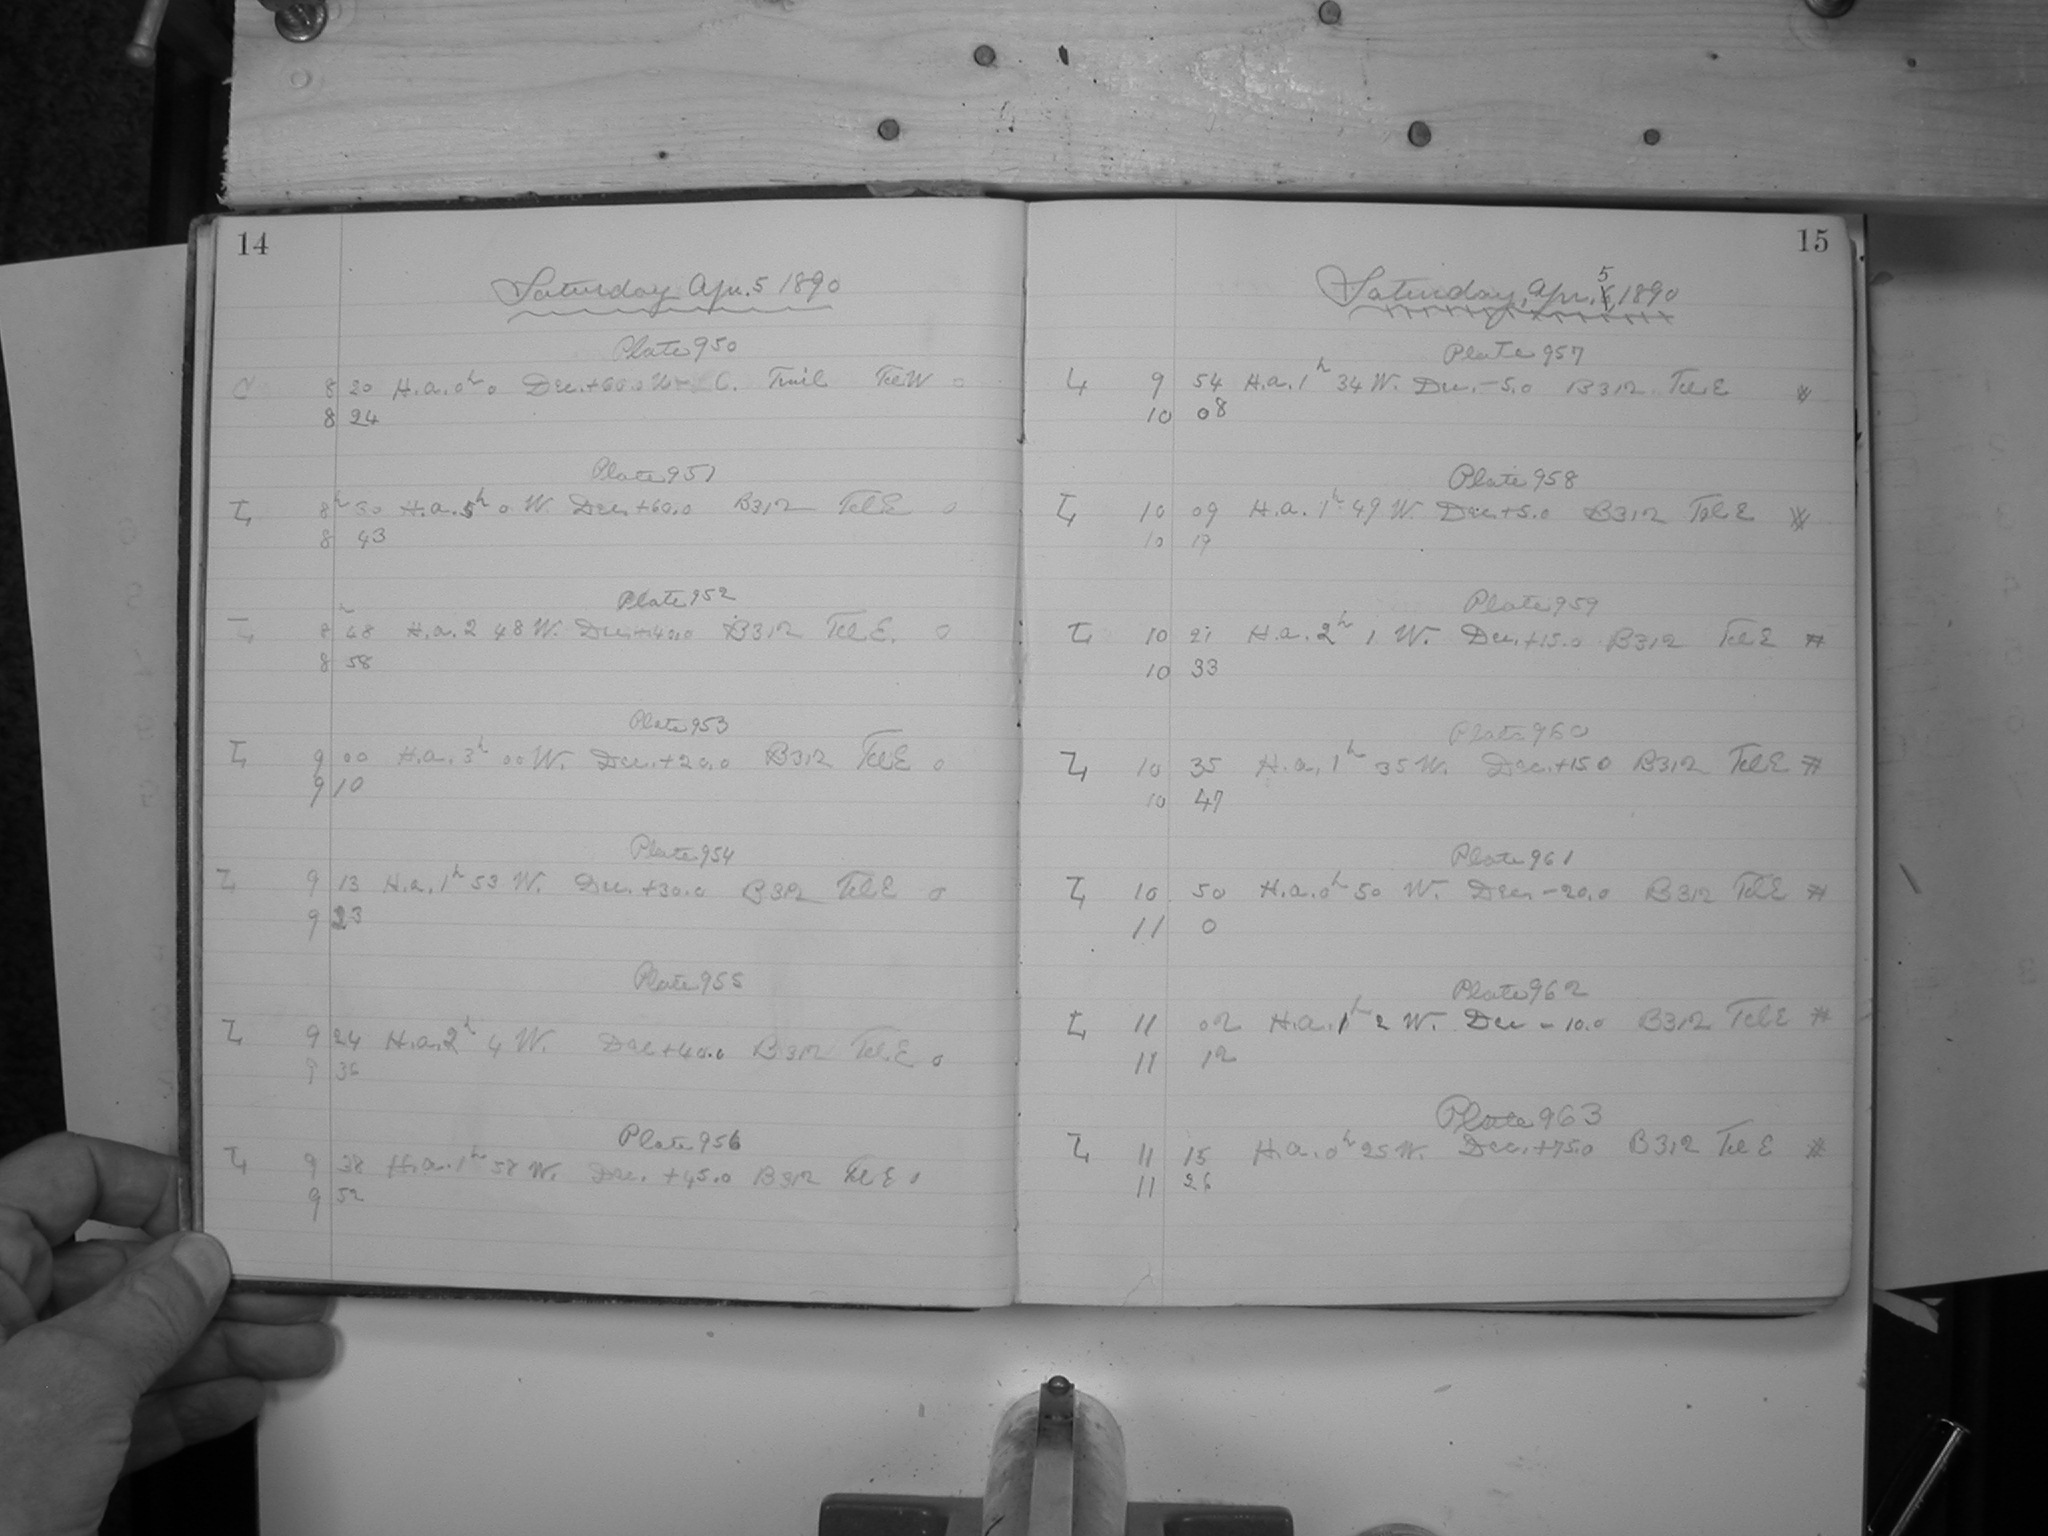 14
Saturday Apr. 5 1890
Plate 950
C 8 20 H.a. 0h 0 Dec. +60.0 C. Trail Tel W o
8 24
Plate 951
8h 30 H.a. 5h 0 W. Dec. +60.0 B312 Tel E o
8 43
Plate 952
8 48 H.a. 2 48 W. Dec. +40.0 B312 Tel E. o
8 58
Plate 953
9 00 H.a. 3h 00 W. Dec. +20.0 B312 Tel E o
9 10
Plate 954
9 13 H.a. 1h 53 W. Dec. +30.0 B312 Tel E o
9 23
Plate 955
9 24 H.a. 2h 4 W. Dec +40.0 B312 Tel. E o
9 36
Plate 956
9 38 H.a. 1h 58 W. Dec. +45.0 B312 Tel E o
9 52
15
Saturday, Apr. 5, 1890
Plate 957
9 54 H.a. 1h 34 W. Dec. -5.0 B312 Tel. E
10 08
Plate 958
10 09 H.a. 1h 49 W. Dec. +5.0 B312 Tel E
10 19
Plate 959
10 21 H.a. 2h 1 W. Dec. +15.0 B312 Tel E #
10 33
Plate 960
10 35 H.a. 1h 35 W. Dec. +15.0 B312 Tel E #
10 47
Plate 961
10 50 H.a. 0h 50 W. Dec. -20.0 B312 Tel E #
11 0
Plate 962
11 02 H.a. 1h 2 W. Dec - 10.0 B312 Tel E #
11 12
Plate 963
11 15 H.a. 0h 25 W. Dec. +75.0 B312 Tel E #
11 26